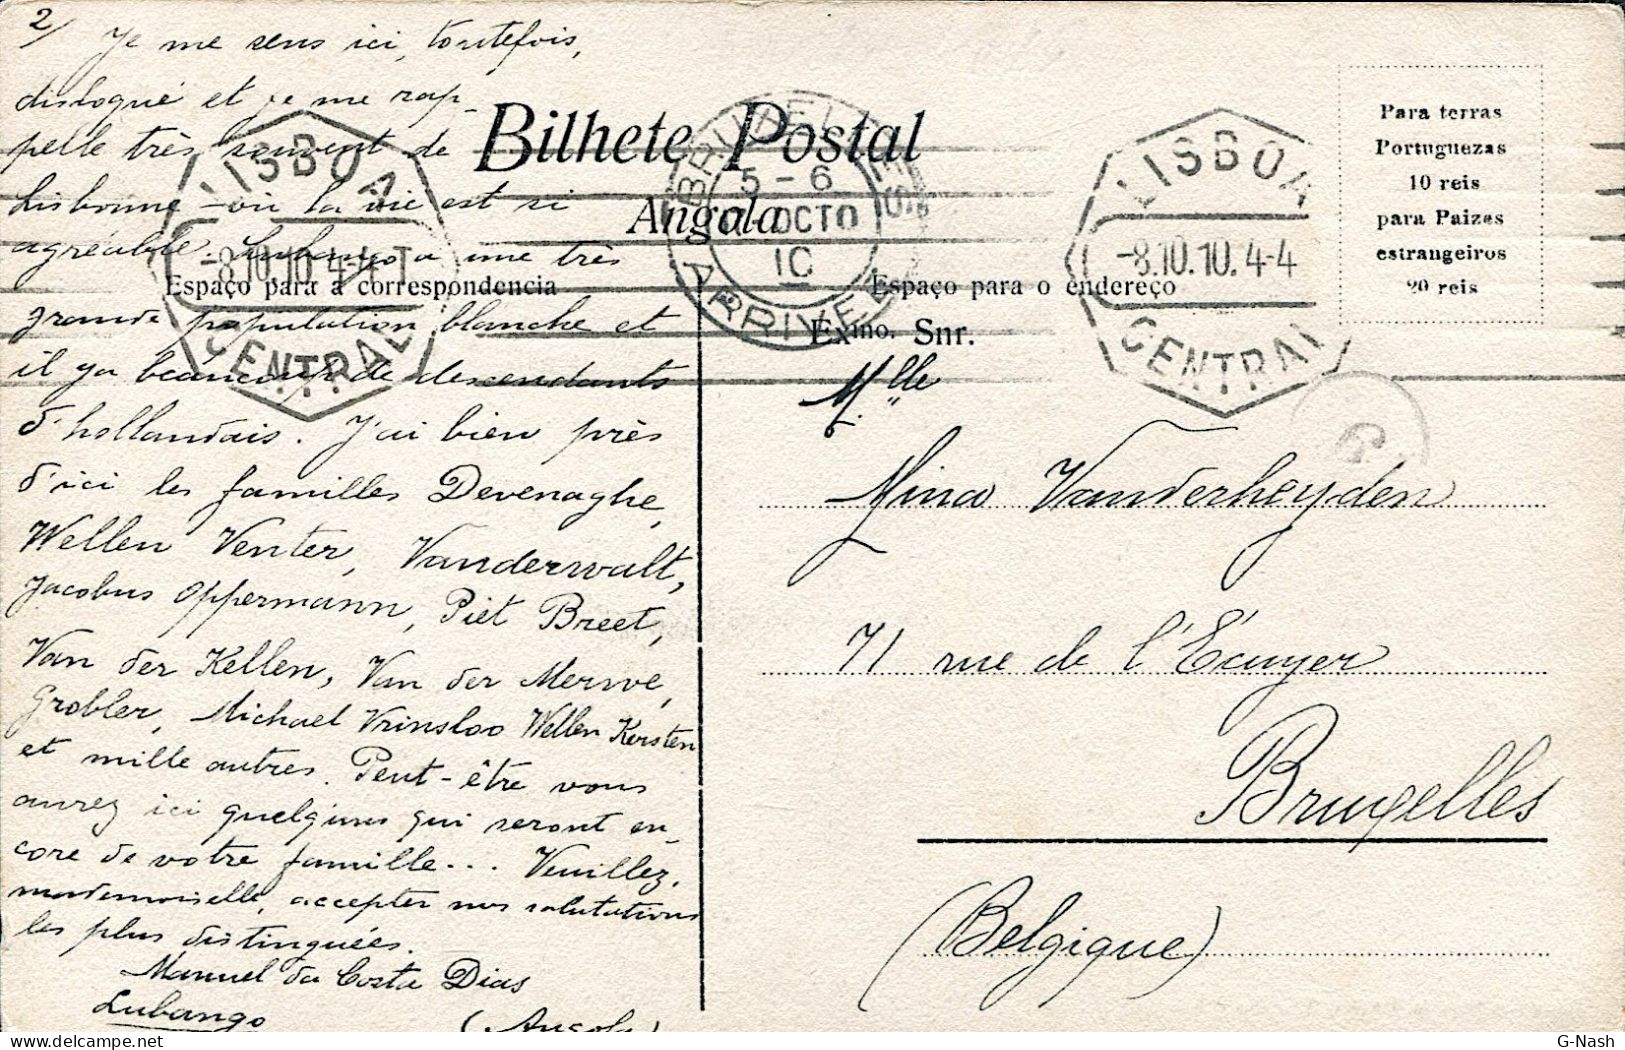 2/
Je me sens ici, toutefois,
disloqué et je me rap-
pelle très souvent de
Lisbonne - où la vie est si
agréable. Lubango a une très
grande population blanche et
il ya beaucoup de descendants
d'hollandais. J'ai bien près
d'ici les familles Devenaghe,
Wellen Venter, Vanderwalt,
Jacobus Oppermann, Piet Breet,
Van der Kellen, Van der Merwe,
Grobler, Michael Vrinsloo Wellen Kersten
et mille autres. Peut-être vous
aurez ici quelqu'uns qui seront en-
core de votre famille... Veuillez,
mademoiselle, accepter nos salutations
les plus distinguées.
Manuel da Costa Dias
Lubango (Angola)
Bilhete Postal
Angola
Espaço para a correspondencia
Espaço para o endereço
Exmo. Snr.
Mlle
Mina Vanderheyden
71 rue de l'Ecuyer
Bruxelles
(Belgique)
Para terras
Portuguezas
10 reis
para Paizes
estrangeiros
20 reis
LISBOA
-8.10.10.4-4 T
CENTRAL
BRUXELLES
5-6
OCTO
10
ARRIVEE
LISBOA
-8.10.10.4-4
CENTRAL
delcampe.net
G-Nash